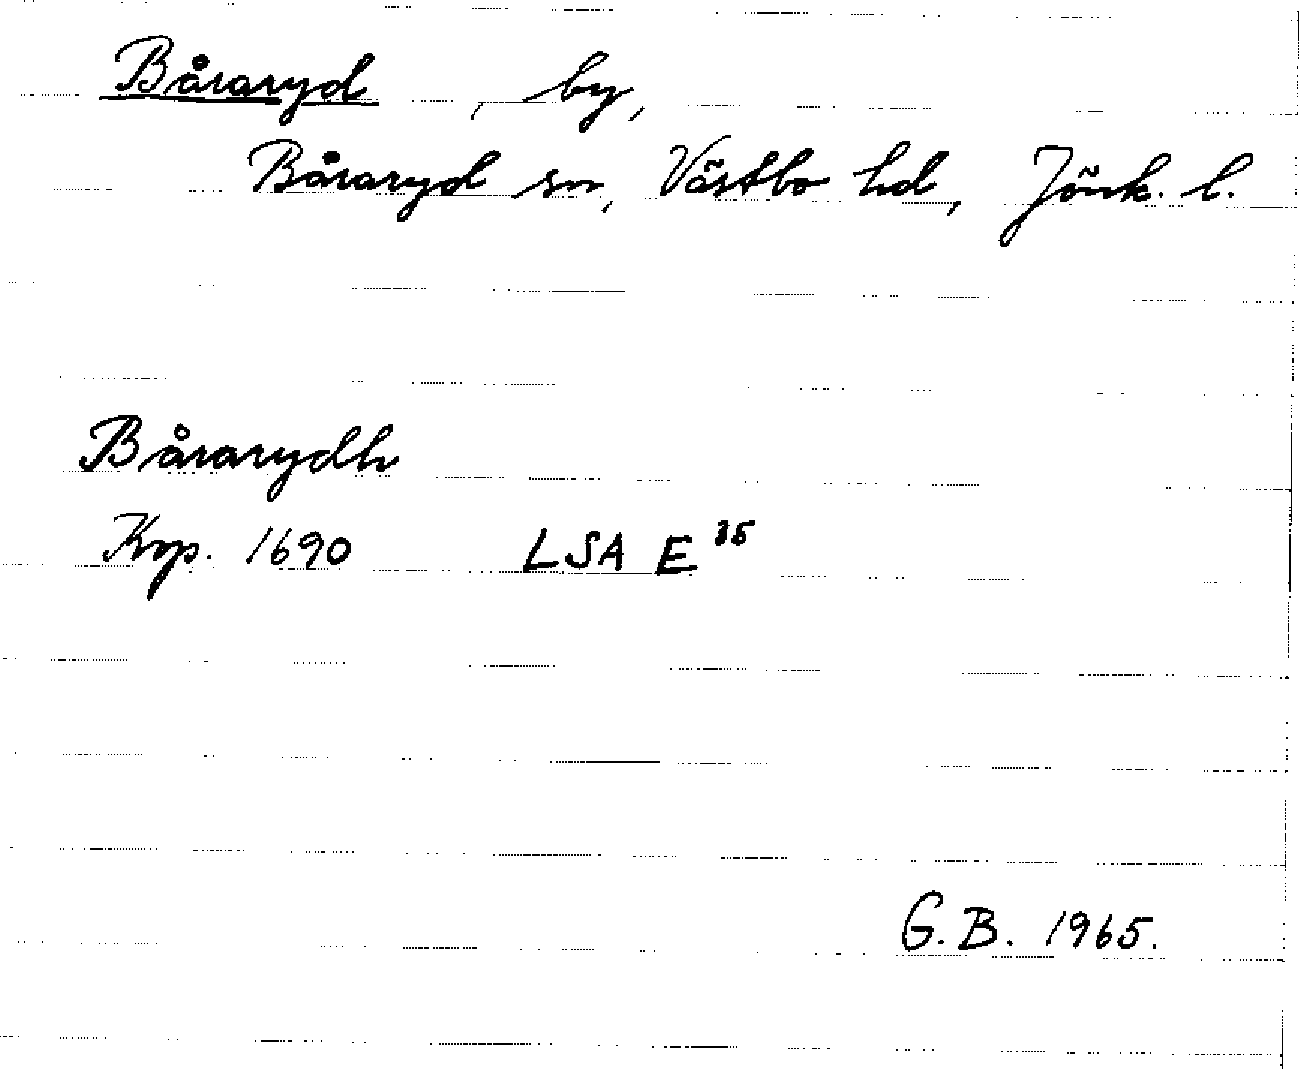 Båraryd, by,
Båraryd sn, Västbo hd, Jönk. l.
Bårarydh
Kop. 1690 LSA E 35
G.B. 1965.